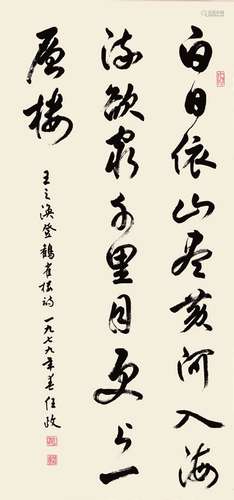 白日依山尽黄河入海
流欲穷千里目更上一
层楼
王之涣登鹳雀楼诗一九七九年春任政